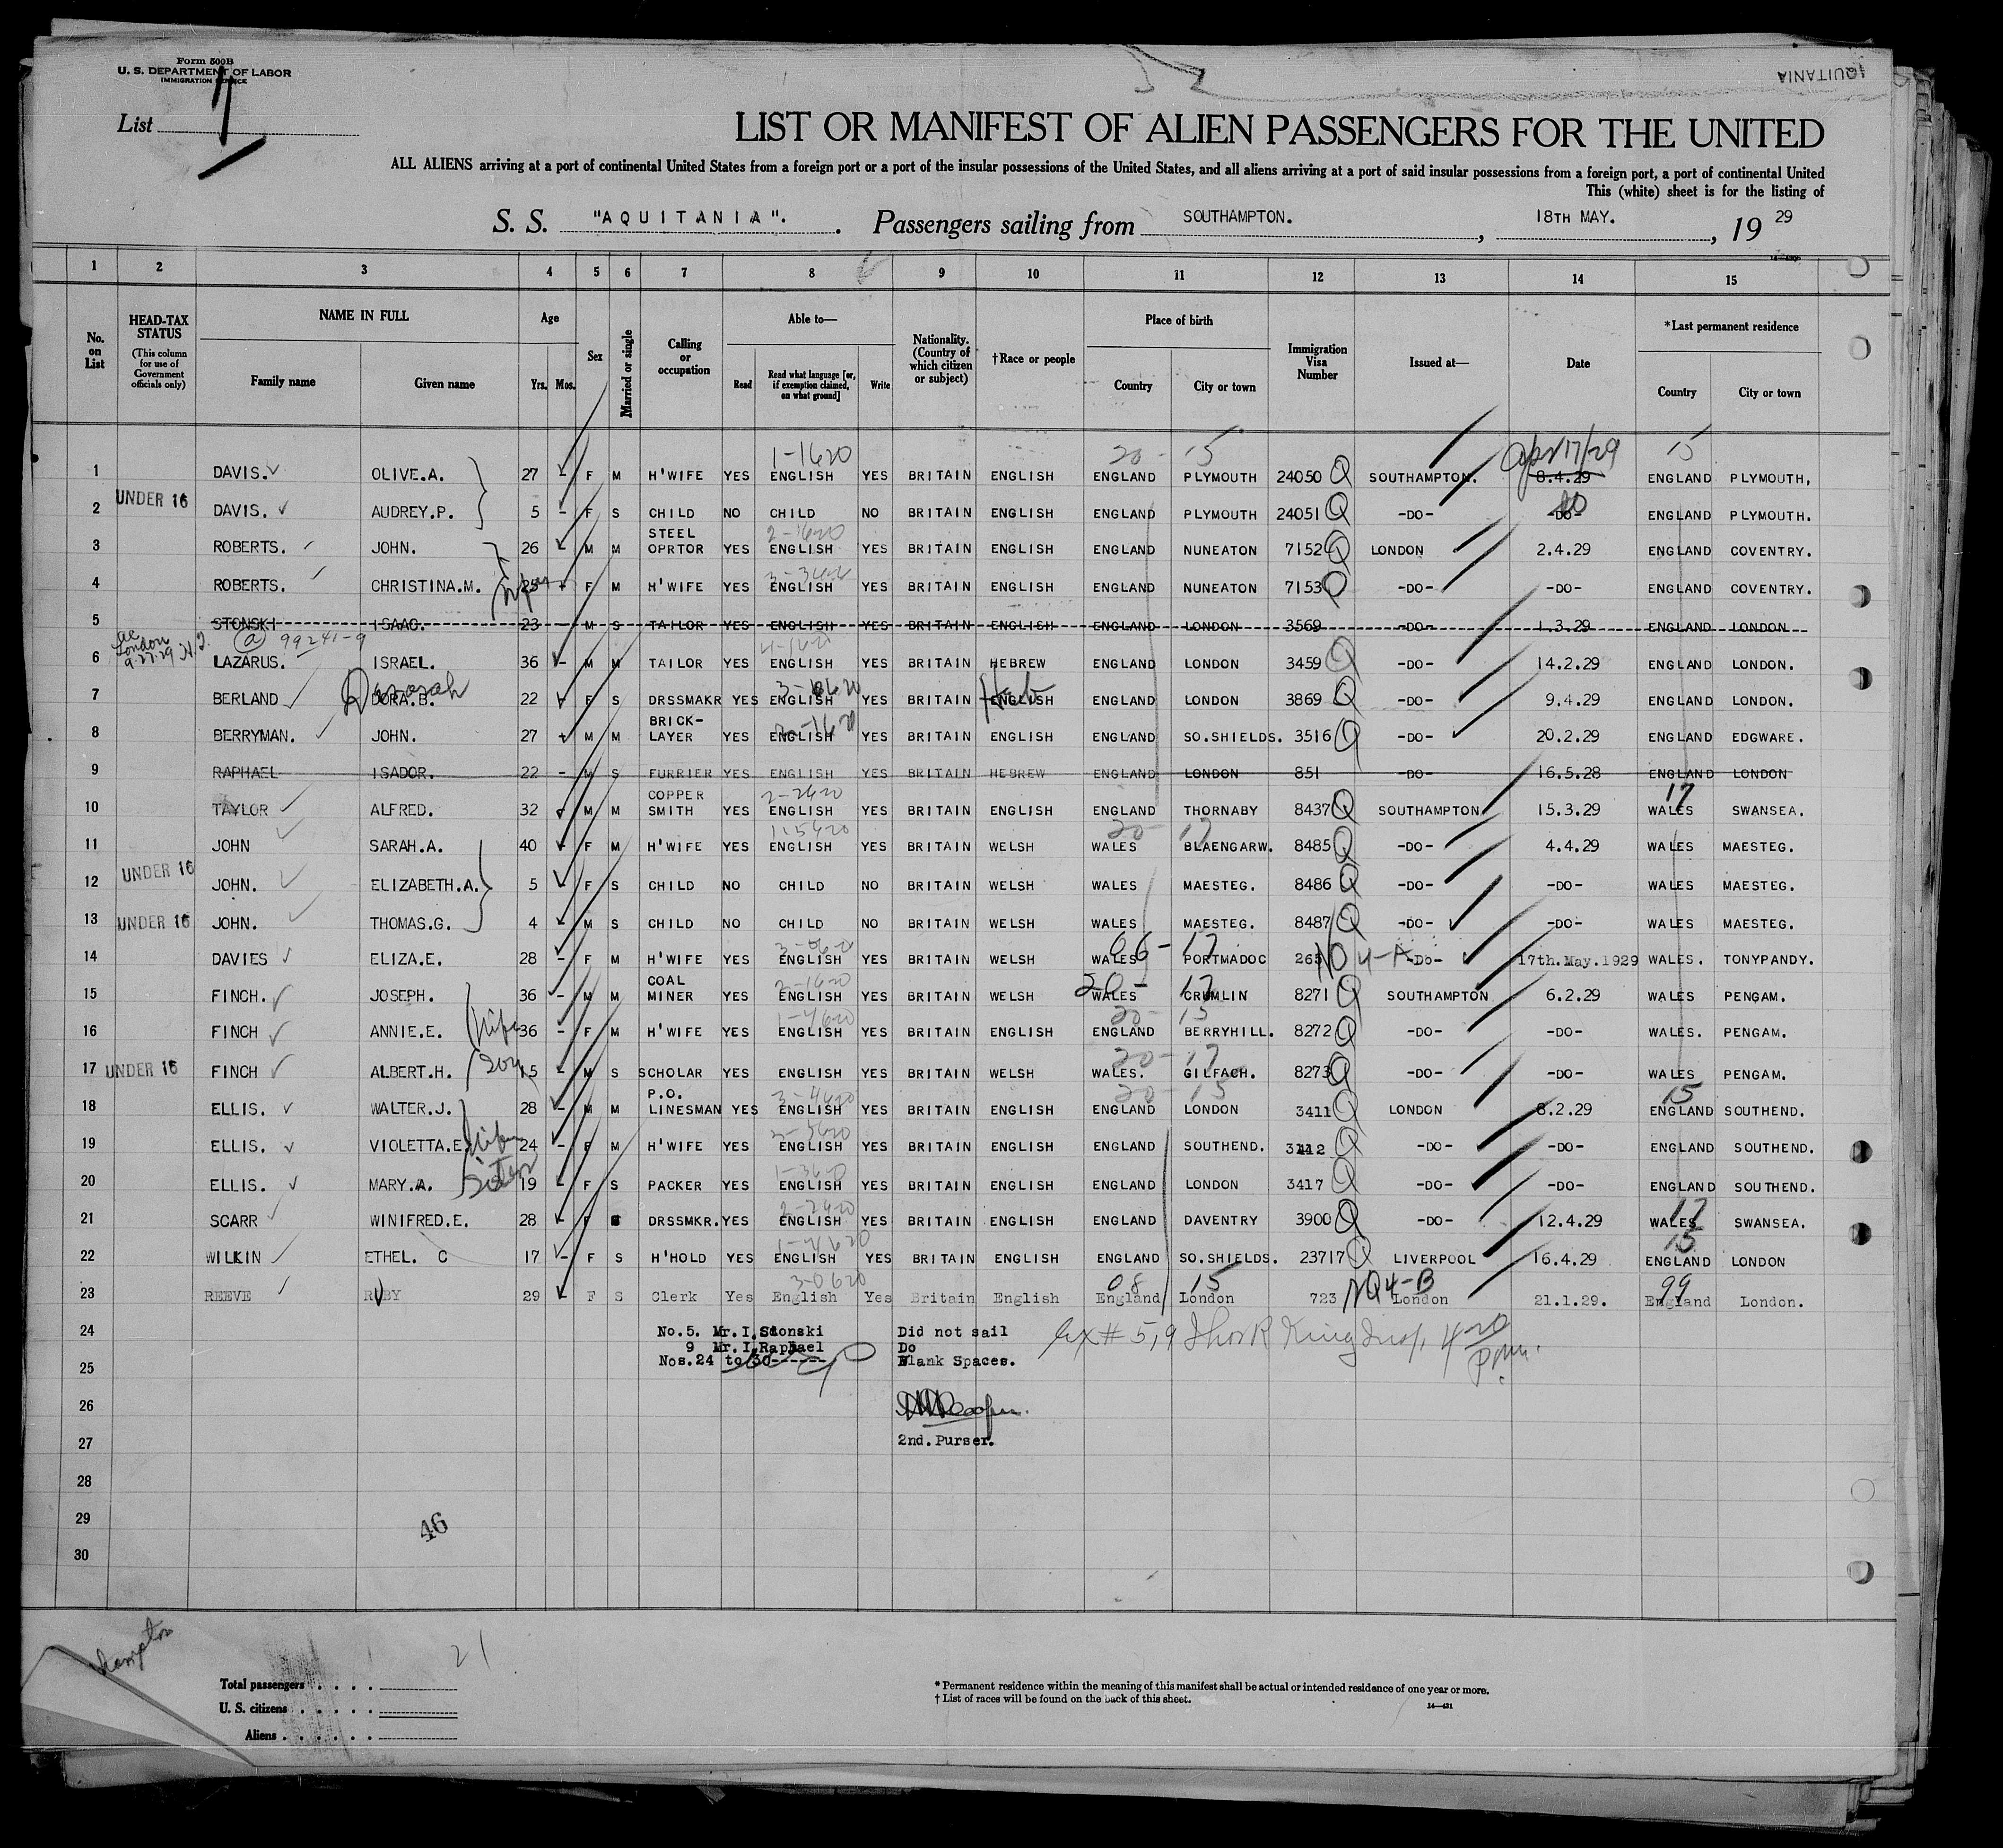 Form 500B
U. S. DEPARTMENT OF LABOR
IMMIGRATION SERVICE
AQUITANIA
List
LIST OR MANIFEST OF ALIEN PASSENGERS FOR THE UNITED
ALL ALIENS arriving at a port of continental United States from a foreign port or a port of the insular possessions of the United States, and all aliens arriving at a port of said insular possessions from a foreign port, a port of continental United
This (white) sheet is for the listing of
S. S. "AQUITANIA". Passengers sailing from SOUTHAMPTON. , 18TH MAY. , 19 29
1 2 3 4 5 6 7 8 9 10 11 12 13 14 15
No. on List
HEAD-TAX STATUS
(This column for use of Government officials only)
NAME IN FULL
Family name Given name
Age
Yrs. Mos.
Sex
Married or single
Calling or occupation
Able to—
Read Read what language [or, if exemption claimed, on what ground] Write
Nationality. (Country of which citizen or subject)
†Race or people
Place of birth
Country City or town
Immigration Visa Number
Issued at—
Date
*Last permanent residence
Country City or town
1-1620 20- 15 Apr 17/29 15
1 DAVIS. OLIVE.A. 27 - F M H'WIFE YES ENGLISH YES BRITAIN ENGLISH ENGLAND PLYMOUTH 24050 Q SOUTHAMPTON. 8.4.29 ENGLAND PLYMOUTH,
2 UNDER 16 DAVIS. AUDREY.P. 5 - F S CHILD NO CHILD NO BRITAIN ENGLISH ENGLAND PLYMOUTH 24051 Q -DO- -DO- ENGLAND PLYMOUTH.
3 ROBERTS. JOHN. 26 M M STEEL OPRTOR YES ENGLISH YES BRITAIN ENGLISH ENGLAND NUNEATON 7152 Q LONDON 2.4.29 ENGLAND COVENTRY.
4 ROBERTS. CHRISTINA.M. wife 25 F M H'WIFE YES ENGLISH YES BRITAIN ENGLISH ENGLAND NUNEATON 7153 Q -DO- -DO- ENGLAND COVENTRY.
5 STONSKI ISAAC. 23 M S TAILOR YES ENGLISH YES BRITAIN ENGLISH ENGLAND LONDON 3569 -DO- 1.3.29 ENGLAND LONDON
London 9.27.29 (a) 99241-9
6 LAZARUS. ISRAEL. 36 - M M TAILOR YES ENGLISH YES BRITAIN HEBREW ENGLAND LONDON 3459 Q -DO- 14.2.29 ENGLAND LONDON.
7 BERLAND Deborah DORA.B. 22 F S DRSSMAKR YES ENGLISH YES BRITAIN ENGLISH Heb ENGLAND LONDON 3869 Q -DO- 9.4.29 ENGLAND LONDON.
8 BERRYMAN. JOHN. 27 M M BRICK-LAYER YES ENGLISH YES BRITAIN ENGLISH ENGLAND SO.SHIELDS. 3516 Q -DO- 20.2.29 ENGLAND EDGWARE.
9 RAPHAEL ISADOR. 22 - M S FURRIER YES ENGLISH YES BRITAIN HEBREW ENGLAND LONDON 851 -DO- 16.5.28 ENGLAND LONDON
10 TAYLOR ALFRED. 32 M M COPPER SMITH YES ENGLISH YES BRITAIN ENGLISH ENGLAND THORNABY 8437 Q SOUTHAMPTON 15.3.29 WALES SWANSEA.
11 JOHN SARAH.A. 40 F M H'WIFE YES ENGLISH YES BRITAIN WELSH WALES BLAENGARW. 8485 Q -DO- 4.4.29 WALES MAESTEG.
12 UNDER 16 JOHN. ELIZABETH.A. 5 F S CHILD NO CHILD NO BRITAIN WELSH WALES MAESTEG. 8486 Q -DO- -DO- WALES MAESTEG.
13 UNDER 16 JOHN. THOMAS.G. 4 M S CHILD NO CHILD NO BRITAIN WELSH WALES MAESTEG. 8487 Q -DO- -DO- WALES MAESTEG.
14 DAVIES ELIZA.E. 28 - F M H'WIFE YES ENGLISH YES BRITAIN WELSH WALES PORTMADOC 265 -Do- 17th.May.1929 WALES. TONYPANDY.
15 FINCH. JOSEPH. 36 - M M COAL MINER YES ENGLISH YES BRITAIN WELSH WALES CRUMLIN 8271 Q SOUTHAMPTON 6.2.29 WALES PENGAM.
16 FINCH ANNIE.E. wife 36 - F M H'WIFE YES ENGLISH YES BRITAIN ENGLISH ENGLAND BERRYHILL. 8272 Q -DO- -DO- WALES. PENGAM.
17 UNDER 16 FINCH ALBERT.H. son 15 - M S SCHOLAR YES ENGLISH YES BRITAIN WELSH WALES. GILFACH. 8273 Q -DO- -DO- WALES PENGAM.
18 ELLIS. WALTER.J. 28 - M M P.O. LINESMAN YES ENGLISH YES BRITAIN ENGLISH ENGLAND LONDON 3411 Q LONDON 8.2.29 ENGLAND SOUTHEND.
19 ELLIS. VIOLETTA.E. wife 24 - F M H'WIFE YES ENGLISH YES BRITAIN ENGLISH ENGLAND SOUTHEND. 3412 Q -DO- -DO- ENGLAND SOUTHEND.
20 ELLIS. MARY.A. sister 19 - F S PACKER YES ENGLISH YES BRITAIN ENGLISH ENGLAND LONDON 3417 Q -DO- -DO- ENGLAND SOUTHEND.
21 SCARR WINIFRED.E. 28 F S DRSSMKR. YES ENGLISH YES BRITAIN ENGLISH ENGLAND DAVENTRY 3900 Q -DO- 12.4.29 WALES SWANSEA.
22 WILKIN ETHEL. C 17 - F S H'HOLD YES ENGLISH YES BRITAIN ENGLISH ENGLAND SO.SHIELDS. 23717 Q LIVERPOOL 16.4.29 ENGLAND LONDON
3-0620 08 15 NQ4-B 99
23 REEVE RUBY 29 F S Clerk Yes English Yes Britain English England London 723 London 21.1.29. England London.
24 No.5. Mr.I.Stonski Did not sail
9 Mr.I.Raphael Do
25 Nos.24 to 30------- Blank Spaces.
26
27 2nd.Purser.
28
29
46
30
21
Total passengers . . . . .
U. S. citizens . . . . .
Aliens . . . . . .
* Permanent residence within the meaning of this manifest shall be actual or intended residence of one year or more.
† List of races will be found on the back of this sheet.
14—431